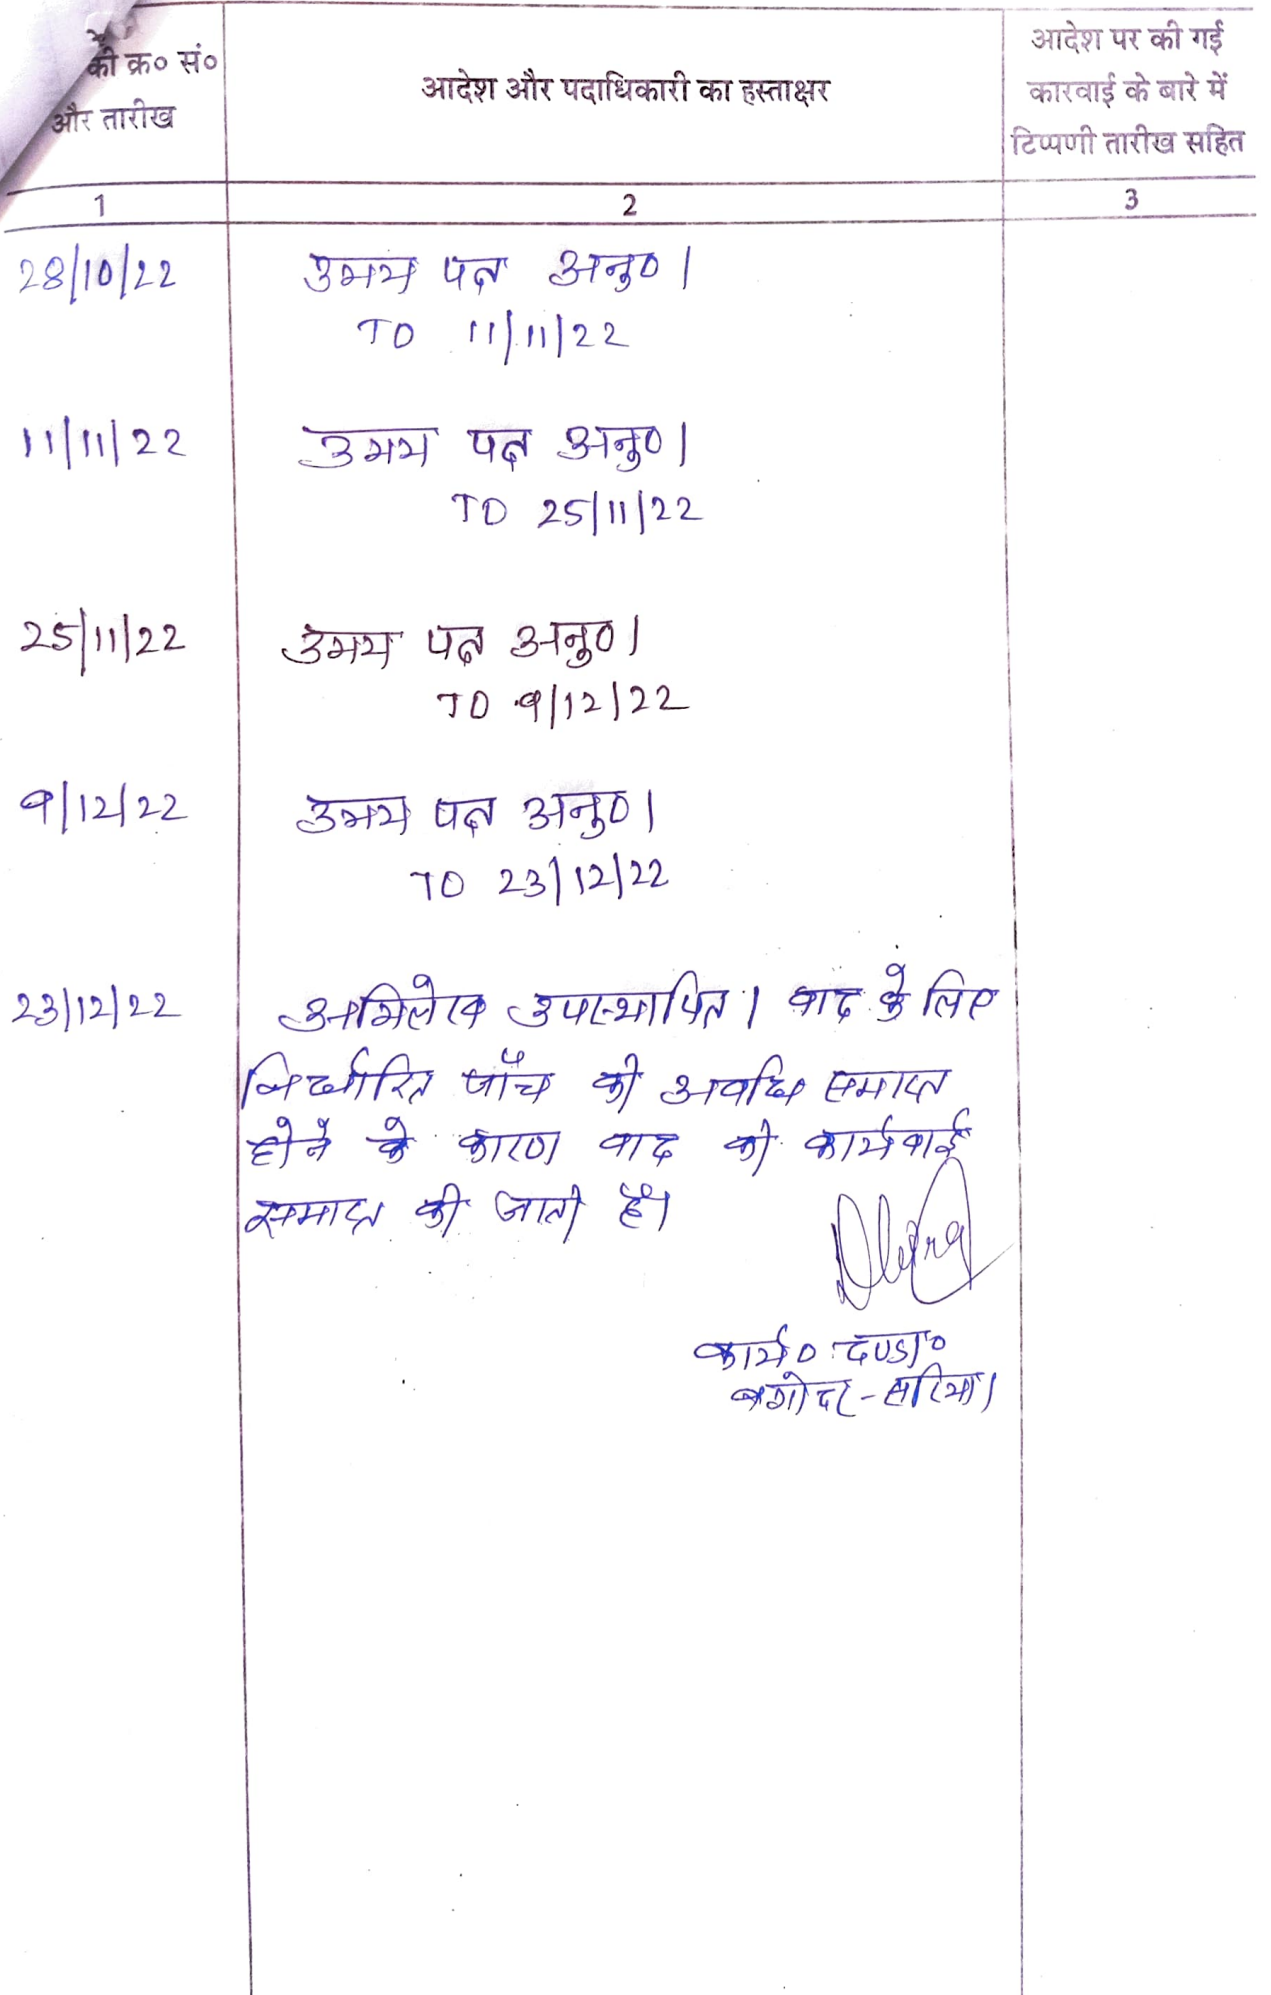 की क्र० सं०
और तारीख
आदेश और पदाधिकारी का हस्ताक्षर
आदेश पर की गई
कारवाई के बारे में
टिप्पणी तारीख सहित
1 2 3
28/10/22 उभय पक्ष अनु० ।
TO 11/11/22
11/11/22 उभय पक्ष अनु० ।
TO 25/11/22
25/11/22 उभय पक्ष अनु० ।
TO 9/12/22
9/12/22 उभय पक्ष अनु० ।
TO 23/12/22
23/12/22 अभिलेख उपस्थापित । वाद के लिए
निर्धारित पाँच की अवधि समाप्त
होने के कारण वाद की कार्यवाई
समाप्त की जाती है।
कार्य० दण्डा०
बगोदर-सरिया।